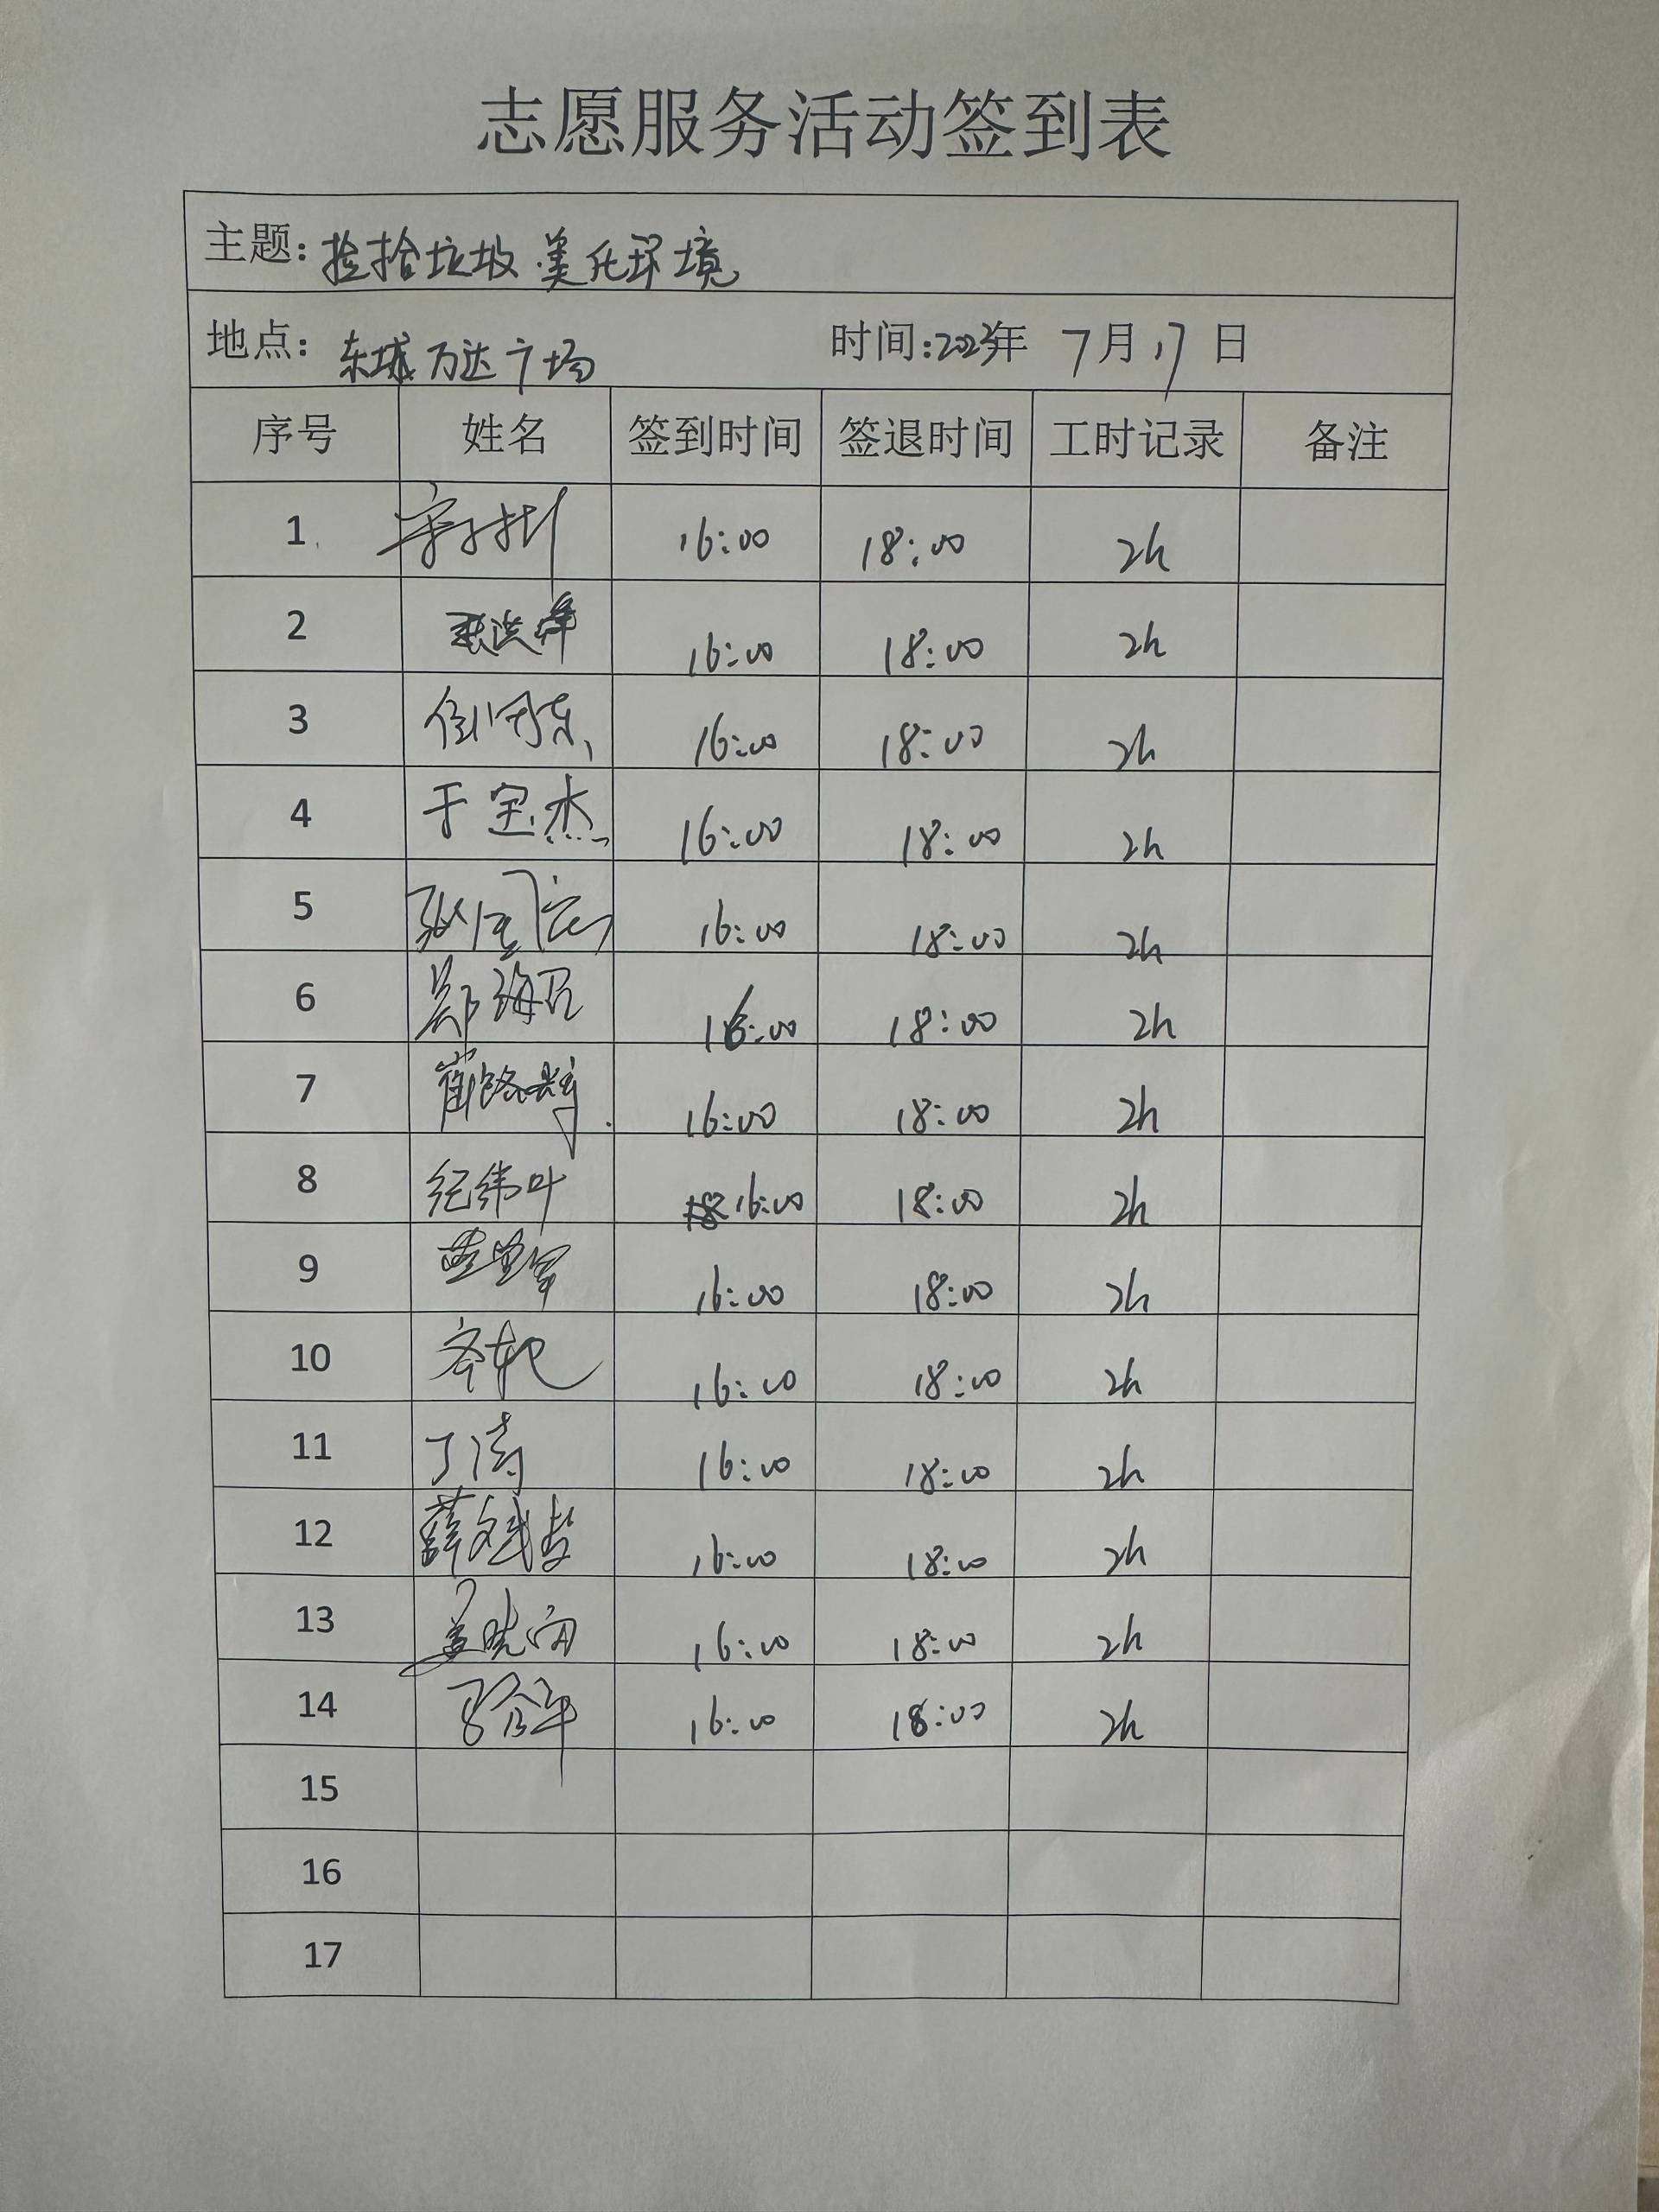 志愿服务活动签到表
主题: 捡拾垃圾 美化环境
地点: 东城万达广场 时间:2023年 7月17日
序号 姓名 签到时间 签退时间 工时记录 备注
1 16:00 18:00 2h
2 16:00 18:00 2h
3 16:00 18:00 2h
4 于宝杰 16:00 18:00 2h
5 16:00 18:00 2h
6 郑海 16:00 18:00 2h
7 崔 16:00 18:00 2h
8 纪纬叶 16:00 18:00 2h
9 16:00 18:00 2h
10 16:00 18:00 2h
11 丁涛 16:00 18:00 2h
12 薛文 16:00 18:00 2h
13 姜晓 16:00 18:00 2h
14 16:00 18:00 2h
15
16
17